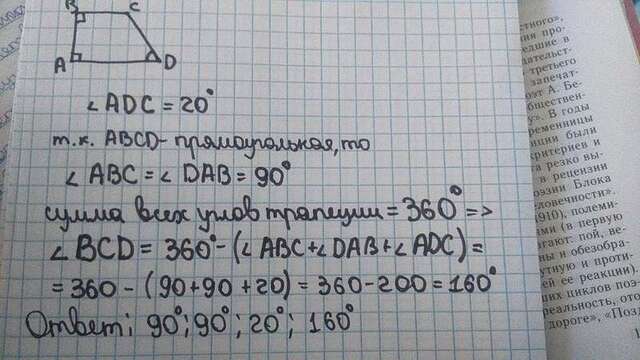 B C
A D
∠ ADC = 20°
т.к. ABCD - прямоугольная, то
∠ ABC = ∠ DAB = 90°
сумма всех углов трапеции = 360° =>
∠ BCD = 360° - (∠ ABC + ∠ DAB + ∠ ADC) =
= 360 - (90 + 90 + 20) = 360 - 200 = 160°
Ответ: 90°; 90°; 20°; 160°
стного»,
шедшие в
третьего
запечат-
оэт А. Бе-
обществен-
у». В годы
временницы
нции были
критериев и
а резко вы-
в рецензии
оэзии Блока
ловечности».
1910), полеми-
ами (в первую
агают: пой, ве-
ны и обезобра-
путную и проти-
ей ее реакции).
ших циклов поэ-
реальность, ото-
дороге», «Позд